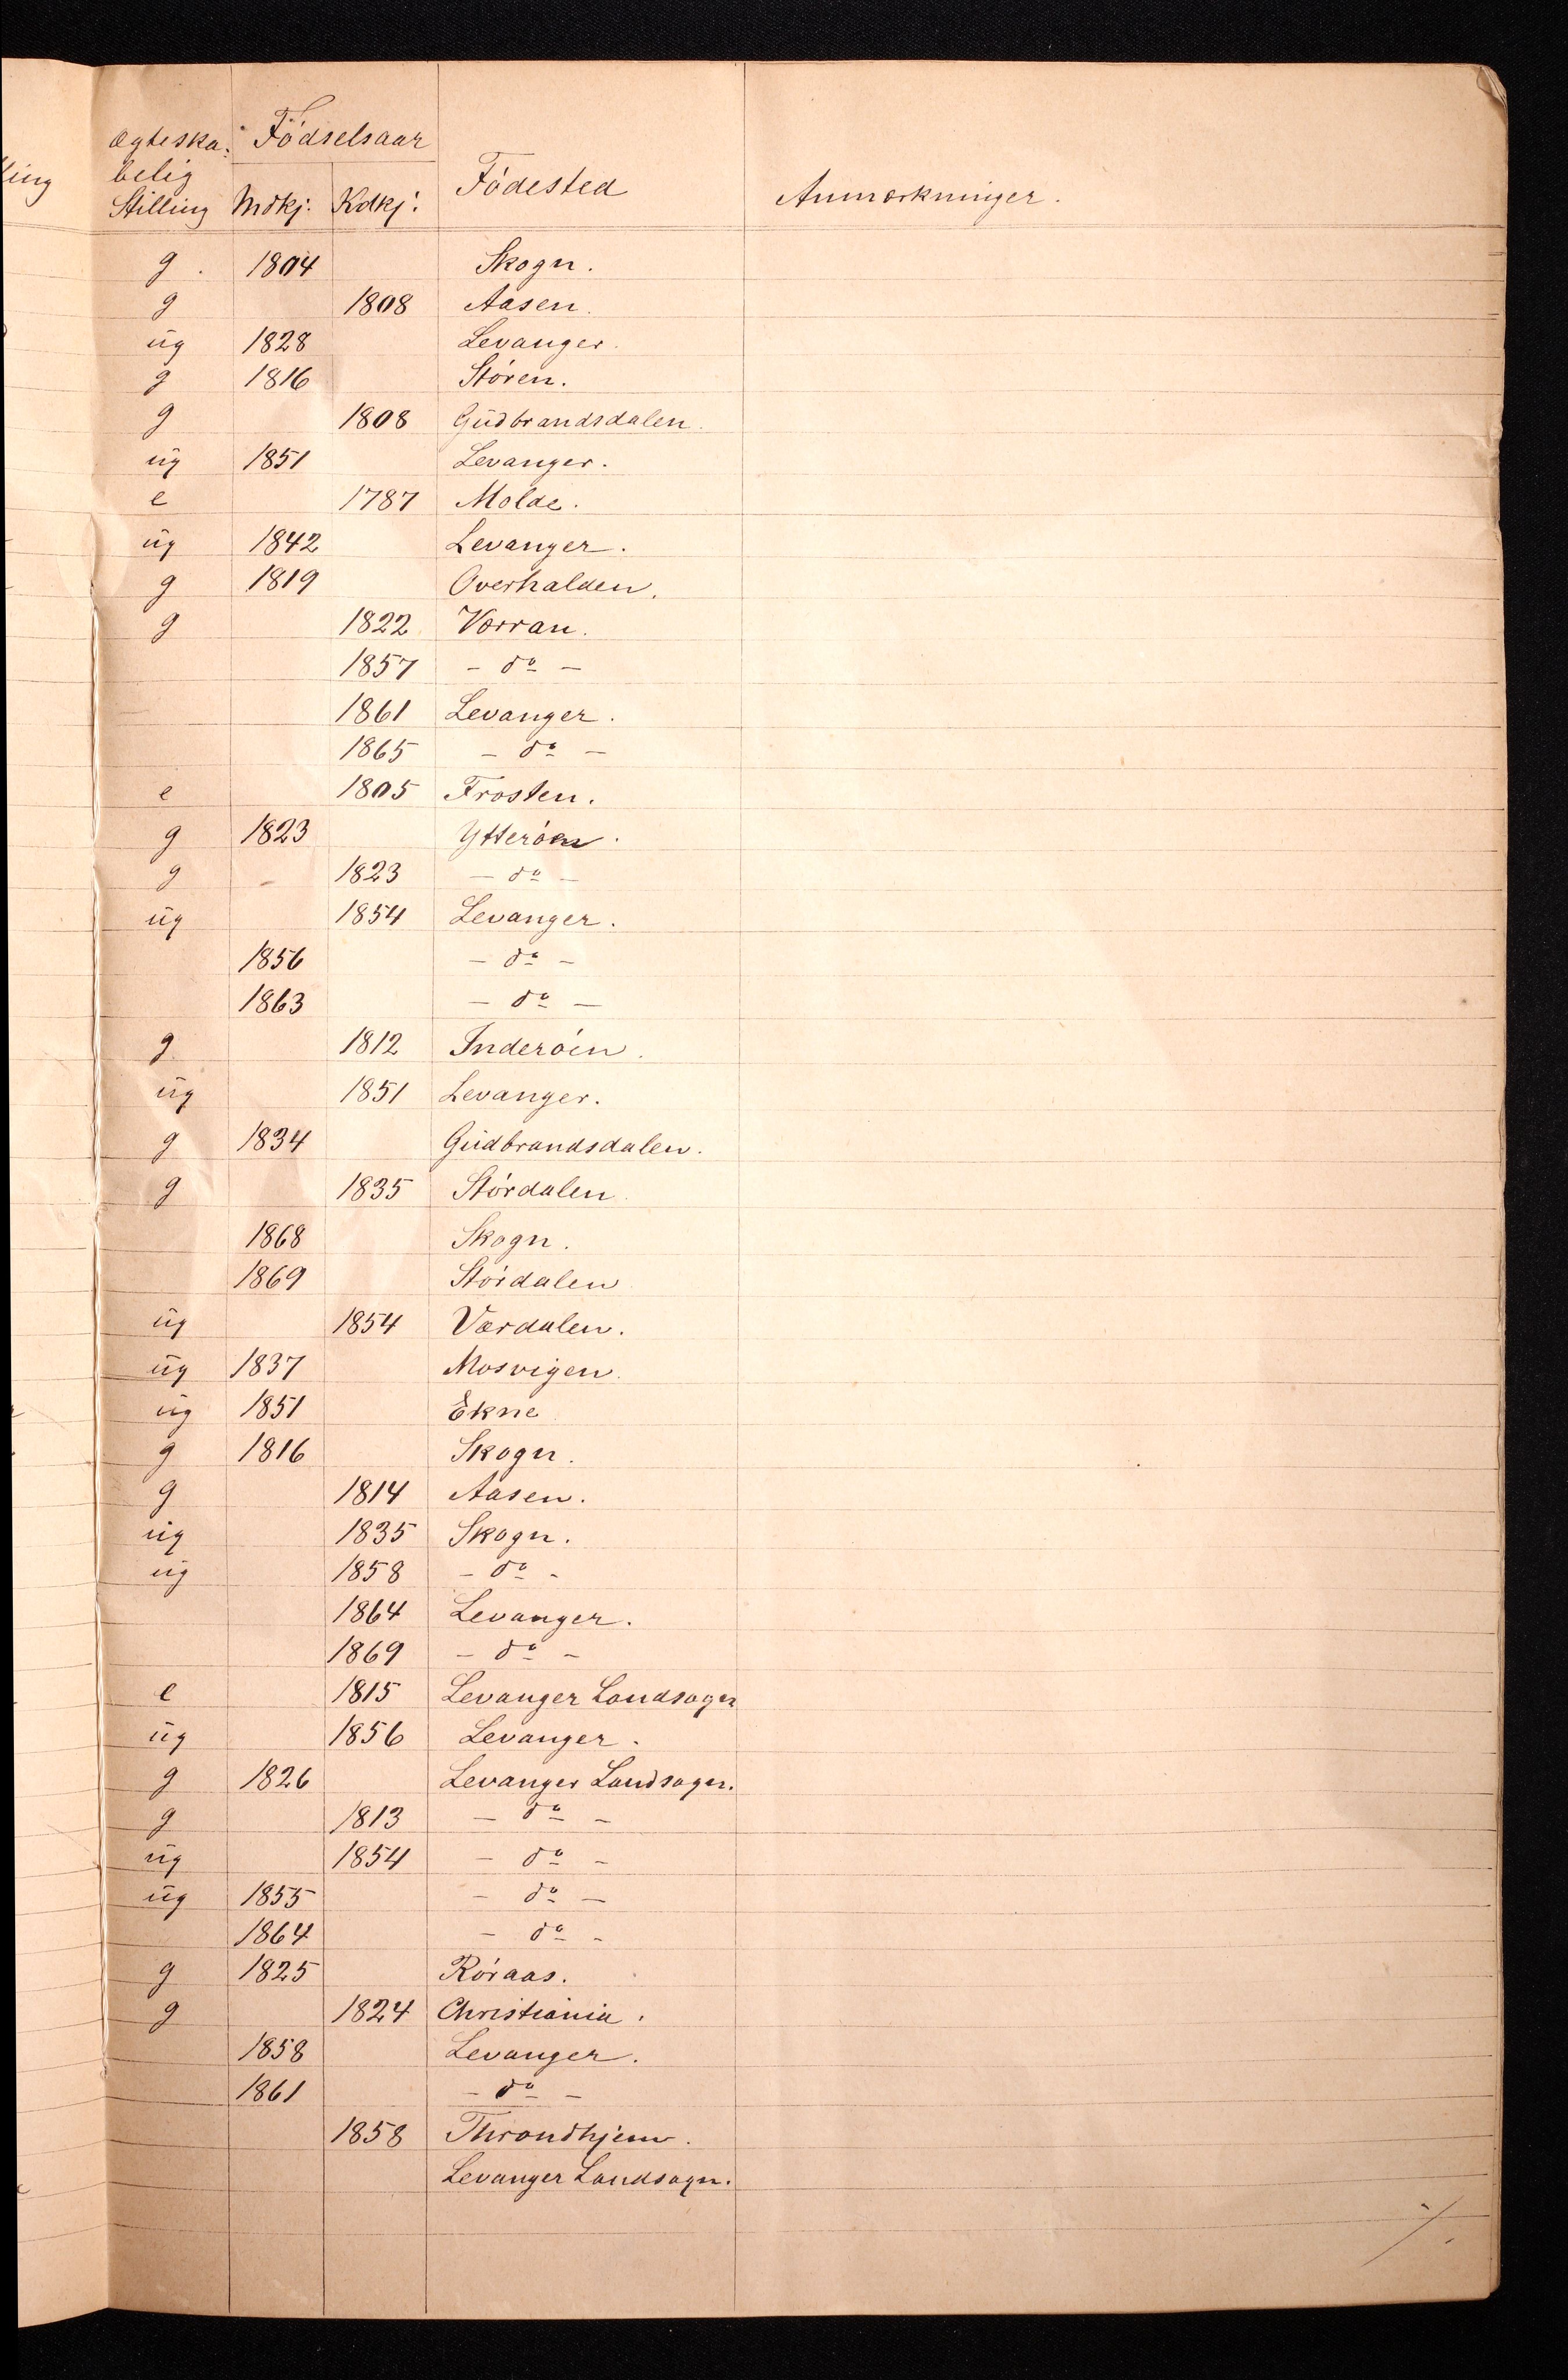 Ægteska: Fødselsaar
belig
Stilling Mdkj: Kdkj: Fødested Anmærkninger.
g. 1804 Skogn.
g 1808 Aasen.
ug 1828 Levanger.
g 1816 Støren.
g 1808 Gudbrandsdalen.
ug 1851 Levanger.
e 1787 Molde.
ug 1842 Levanger.
g 1819 Overhalden.
g 1822 Værran.
1857 - do -
1861 Levanger.
1865 - do -
e 1805 Frosten.
g 1823 Ytterøen.
g 1823 - do -
ug 1854 Levanger.
1856 - do -
1863 - do -
g 1812 Inderøen.
ug 1851 Levanger.
g 1834 Gudbrandsdalen.
g 1835 Størdalen
1868 Skogn.
1869 Størdalen
ug 1854 Værdalen.
ug 1837 Mosvigen.
ug 1851 Ekne
g 1816 Skogn.
g 1814 Aasen.
ug 1835 Skogn.
ug 1858 - do -
1864 Levanger.
1869 - do -
e 1815 Levanger Landsogn
ug 1856 Levanger.
g 1826 Levanger Landsogn.
g 1813 - do -
ug 1854 - do -
ug 1855 - do -
1864 - do -
g 1825 Røraas.
g 1824 Christiania.
1858 Levanger.
1861 - do -
1858 Throndhjem.
Levanger Landsogn.